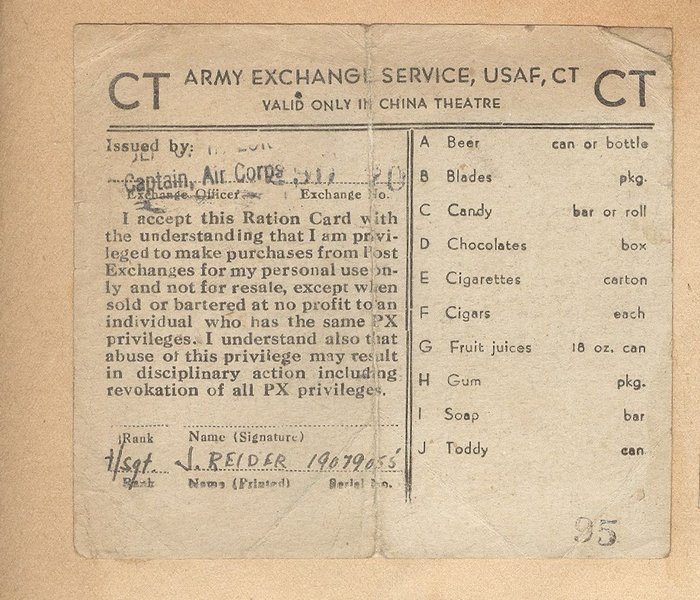 CT ARMY EXCHANGE SERVICE, USAF, CT CT
VALID ONLY IN CHINA THEATRE
Issued by:
Captain, Air Corps
Exchange Officer Exchange No.
I accept this Ration Card with
the understanding that I am privi-
leged to make purchases from Post
Exchanges for my personal use on-
ly and not for resale, except when
sold or bartered at no profit to an
individual who has the same PX
privileges. I understand also that
abuse of this privilege may result
in disciplinary action including
revokation of all PX privileges.
Rank Name (Signature)
t/sgt. J. REIDER 19079055
Rank Name (Printed) Serial No.
A Beer can or bottle
B Blades pkg.
C Candy bar or roll
D Chocolates box
E Cigarettes carton
F Cigars each
G Fruit juices 18 oz. can
H Gum pkg.
I Soap bar
J Toddy can
95